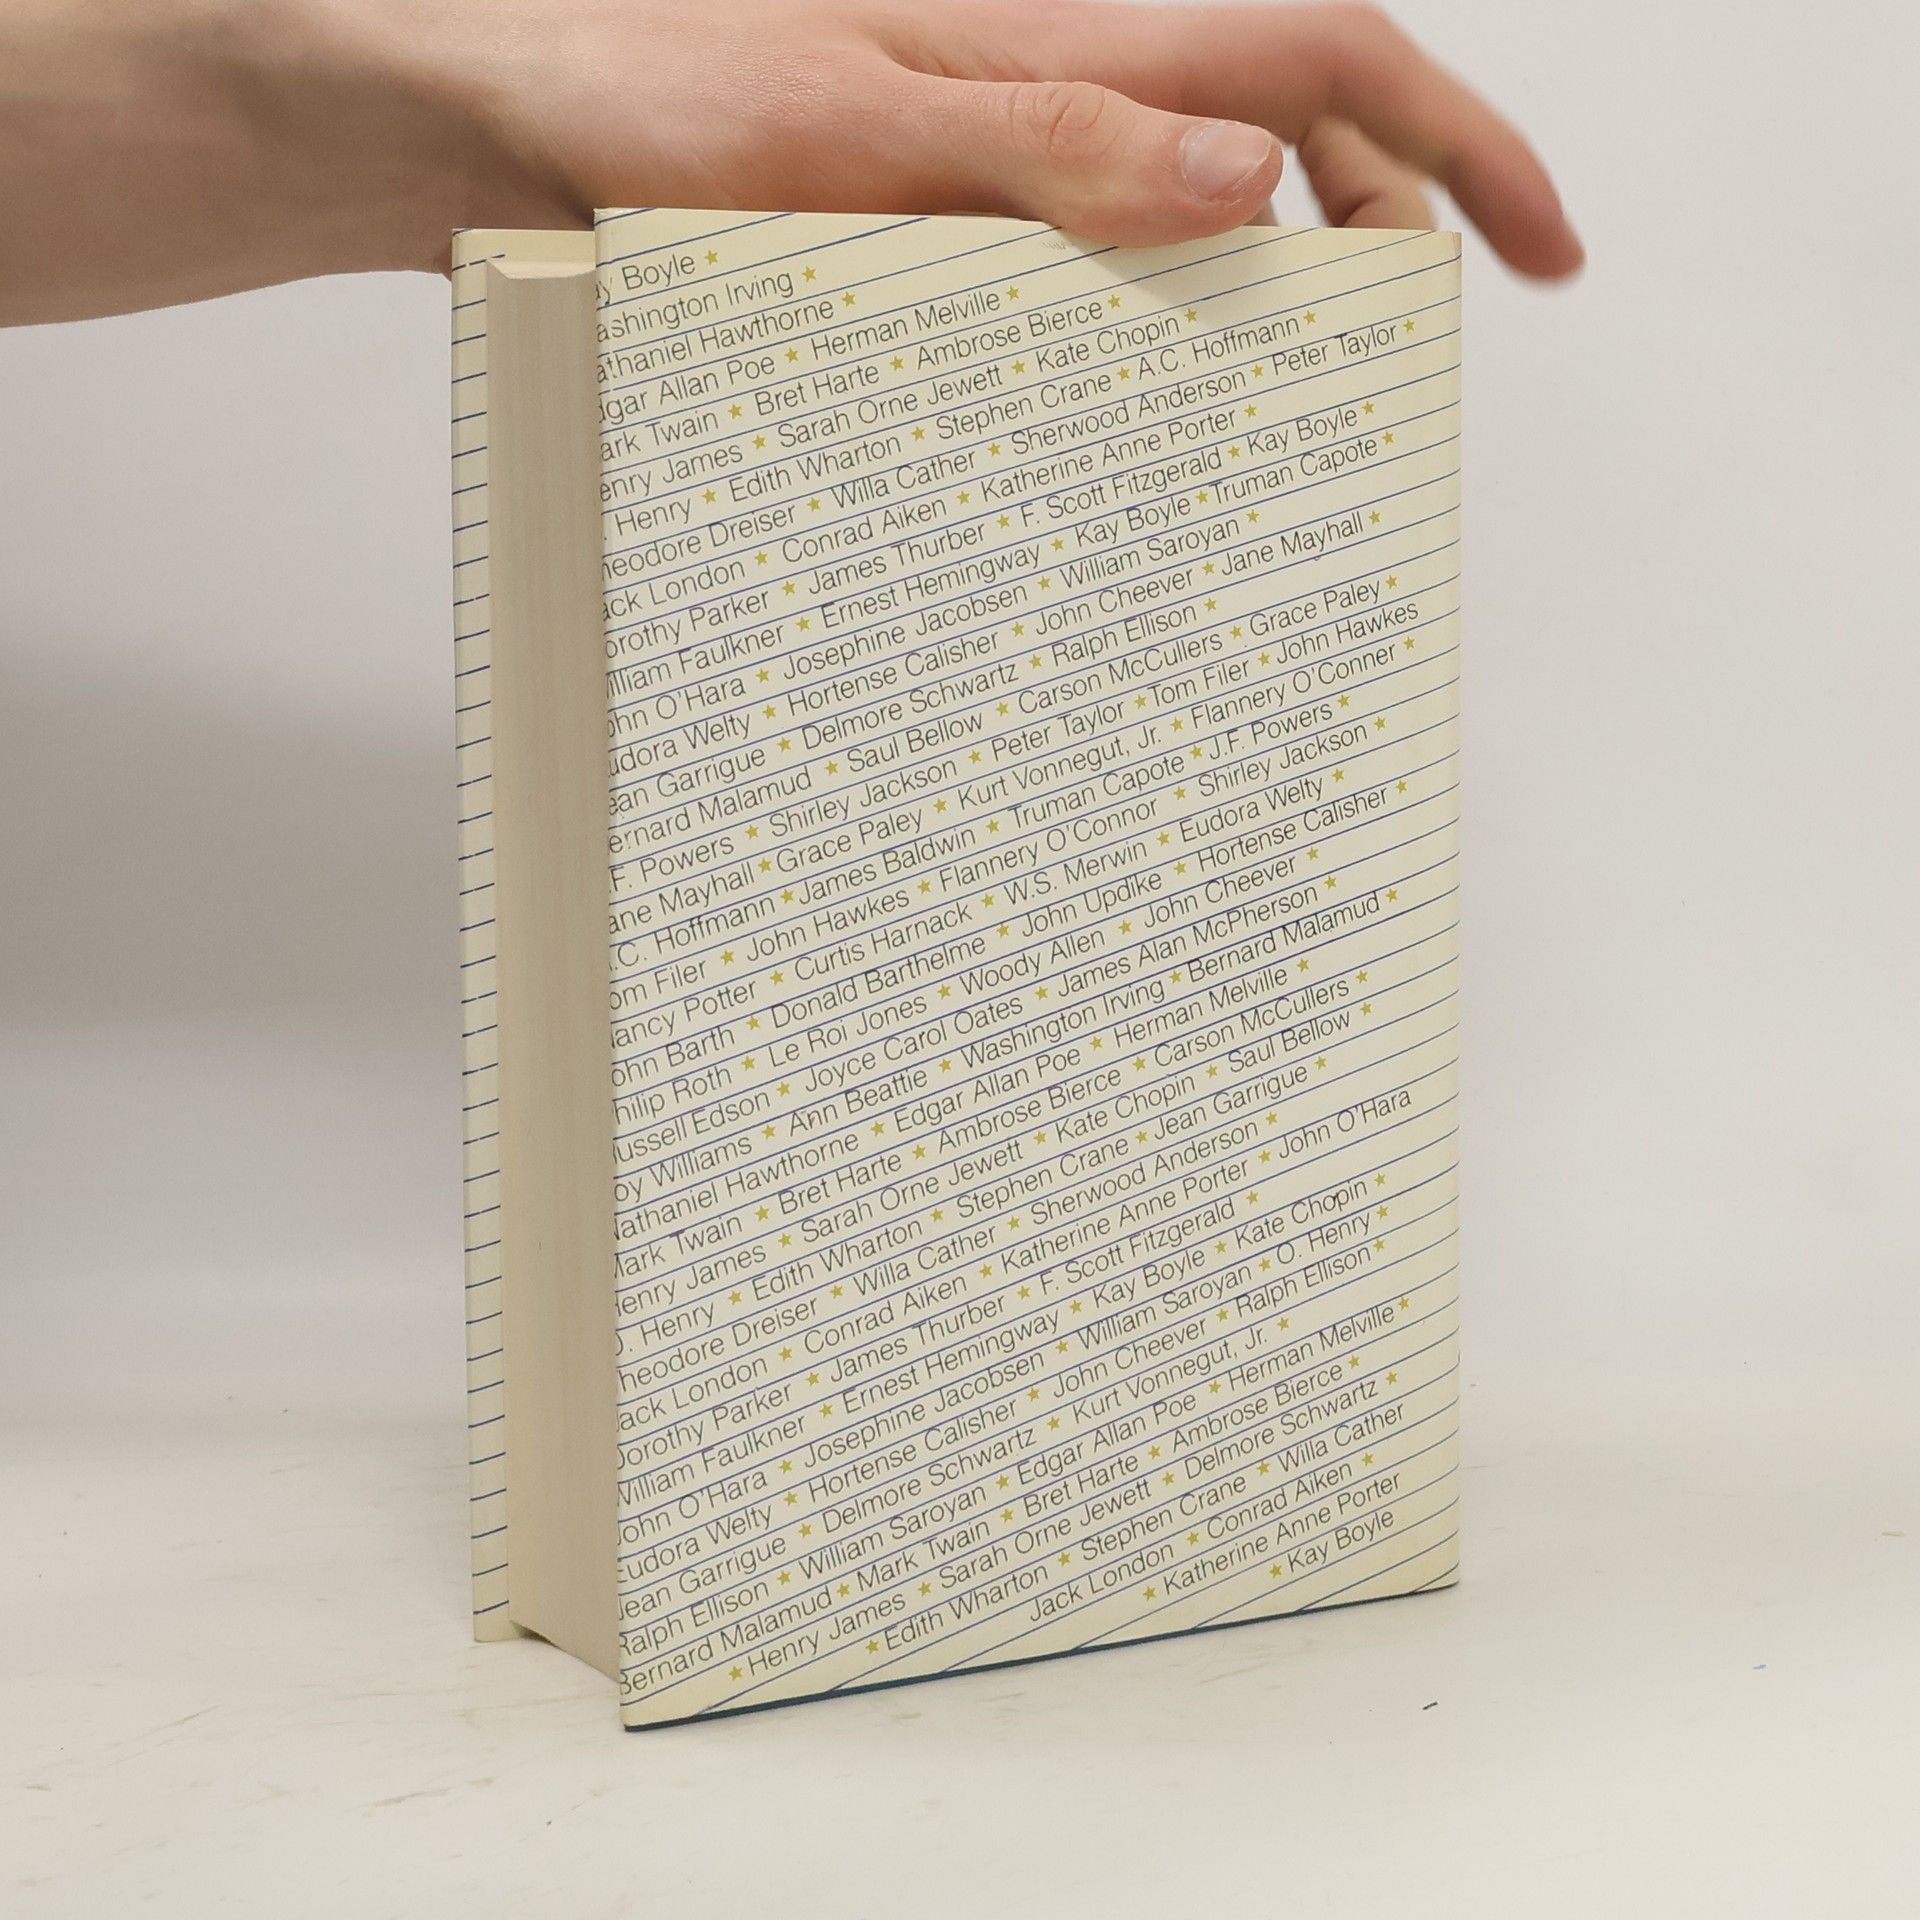 y Boyle ★
ashington Irving ★
athaniel Hawthorne ★
dgar Allan Poe ★ Herman Melville ★
ark Twain ★ Bret Harte ★ Ambrose Bierce ★
enry James ★ Sarah Orne Jewett ★ Kate Chopin ★
. Henry ★ Edith Wharton ★ Stephen Crane ★ A.C. Hoffmann ★
heodore Dreiser ★ Willa Cather ★ Sherwood Anderson ★ Peter Taylor ★
ack London ★ Conrad Aiken ★ Katherine Anne Porter ★
orothy Parker ★ James Thurber ★ F. Scott Fitzgerald ★ Kay Boyle ★
illiam Faulkner ★ Ernest Hemingway ★ Kay Boyle ★ Truman Capote ★
ohn O'Hara ★ Josephine Jacobsen ★ William Saroyan ★
udora Welty ★ Hortense Calisher ★ John Cheever ★ Jane Mayhall ★
ean Garrigue ★ Delmore Schwartz ★ Ralph Ellison ★
ernard Malamud ★ Saul Bellow ★ Carson McCullers ★ Grace Paley ★
.F. Powers ★ Shirley Jackson ★ Peter Taylor ★ Tom Filer ★ John Hawkes
ane Mayhall ★ Grace Paley ★ Kurt Vonnegut, Jr. ★ Flannery O'Conner ★
.C. Hoffmann ★ James Baldwin ★ Truman Capote ★ J.F. Powers ★
om Filer ★ John Hawkes ★ Flannery O'Connor ★ Shirley Jackson ★
ancy Potter ★ Curtis Harnack ★ W.S. Merwin ★ Eudora Welty ★
ohn Barth ★ Donald Barthelme ★ John Updike ★ Hortense Calisher ★
hilip Roth ★ Le Roi Jones ★ Woody Allen ★ John Cheever ★
ussell Edson ★ Joyce Carol Oates ★ James Alan McPherson ★
oy Williams ★ Ann Beattie ★ Washington Irving ★ Bernard Malamud ★
Nathaniel Hawthorne ★ Edgar Allan Poe ★ Herman Melville ★
Mark Twain ★ Bret Harte ★ Ambrose Bierce ★ Carson McCullers ★
Henry James ★ Sarah Orne Jewett ★ Kate Chopin ★ Saul Bellow ★
O. Henry ★ Edith Wharton ★ Stephen Crane ★ Jean Garrigue ★
heodore Dreiser ★ Willa Cather ★ Sherwood Anderson ★
Jack London ★ Conrad Aiken ★ Katherine Anne Porter ★ John O'Hara
Dorothy Parker ★ James Thurber ★ F. Scott Fitzgerald ★
William Faulkner ★ Ernest Hemingway ★ Kay Boyle ★ Kate Chopin ★
John O'Hara ★ Josephine Jacobsen ★ William Saroyan ★ O. Henry ★
Eudora Welty ★ Hortense Calisher ★ John Cheever ★ Ralph Ellison ★
Jean Garrigue ★ Delmore Schwartz ★ Kurt Vonnegut, Jr. ★
Ralph Ellison ★ William Saroyan ★ Edgar Allan Poe ★ Herman Melville ★
Bernard Malamud ★ Mark Twain ★ Bret Harte ★ Ambrose Bierce ★
★ Henry James ★ Sarah Orne Jewett ★ Delmore Schwartz ★
★ Edith Wharton ★ Stephen Crane ★ Willa Cather
Jack London ★ Conrad Aiken ★
★ Katherine Anne Porter
★ Kay Boyle